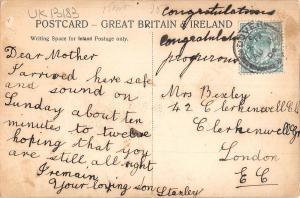 UK13183
Congratulations
POSTCARD - GREAT BRITAIN & IRELAND
Writing Space for Inland Postage only.
Congratulations
prosperous
Dear Mother
I arrived here safe
and sound on
Sunday about ten
minutes to twelve
hoping that you
are still all right
I remain
Your loving son Stanley
Mrs Bexley
42 Clerkenwell
Clerkenwell Gr
London
E C